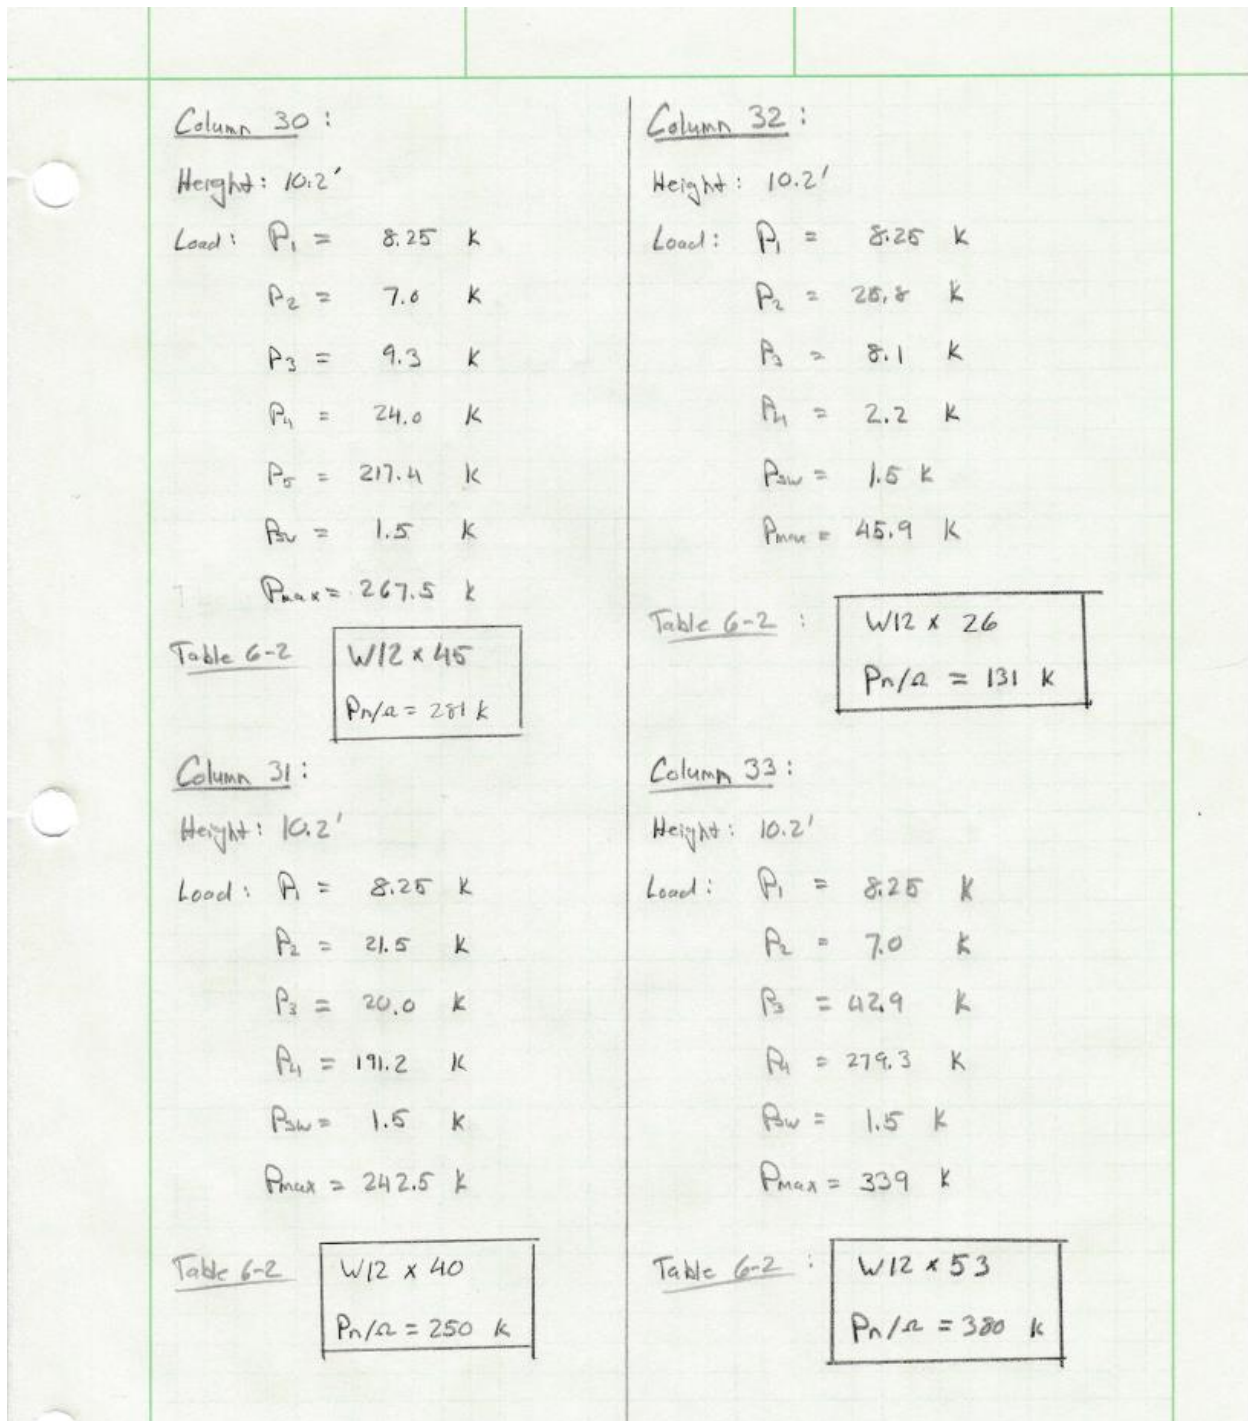 Column 30 :
Height: 10.2'
Load : P1 = 8.25 K
P2 = 7.0 K
P3 = 9.3 K
P4 = 24.0 K
P5 = 217.4 K
Psw = 1.5 K
Pmax = 267.5 k
Table 6-2
W12 x 45
Pn/Ω = 281 k
Column 31 :
Height : 10.2'
Load : P1 = 8.25 K
P2 = 21.5 K
P3 = 20.0 K
P4 = 191.2 K
Psw = 1.5 K
Pmax = 242.5 k
Table 6-2
W12 x 40
Pn/Ω = 250 k
Column 32 :
Height : 10.2'
Load : P1 = 8.25 K
P2 = 25.8 K
P3 = 8.1 K
P4 = 2.2 K
Psw = 1.5 K
Pmax = 45.9 K
Table 6-2 :
W12 x 26
Pn/Ω = 131 K
Column 33 :
Height : 10.2'
Load : P1 = 8.25 K
P2 = 7.0 K
P3 = 42.9 K
P4 = 279.3 K
Psw = 1.5 K
Pmax = 339 K
Table 6-2 :
W12 x 53
Pn/Ω = 380 k